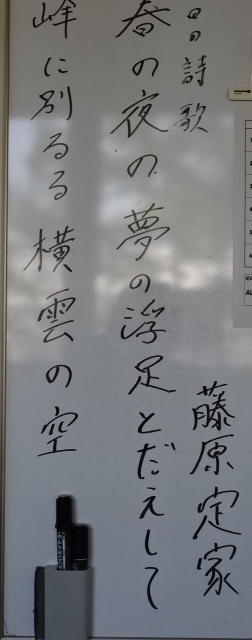 日の詩歌
藤原定家
春の夜の夢の浮足とだえして
峰に別るる横雲の空